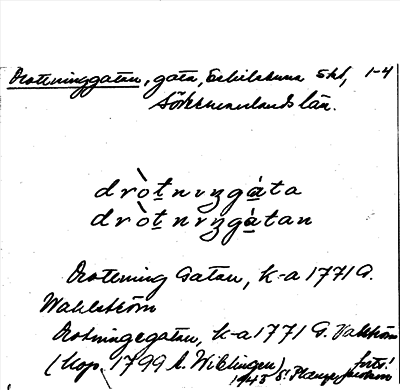 Drottninggatan, gata, Eskilstuna stad, 1-4
Södermanlands län.
dròt̲nıŋgá̲ta
dròt̲nıŋgá̲tan
Drottning Gatan, k-a 1771 G.
Wahlström
Drotningegatan, k-a 1771 G. Vahlström
(kop. 1799 A. Wiblingen) forts!
1943 St.